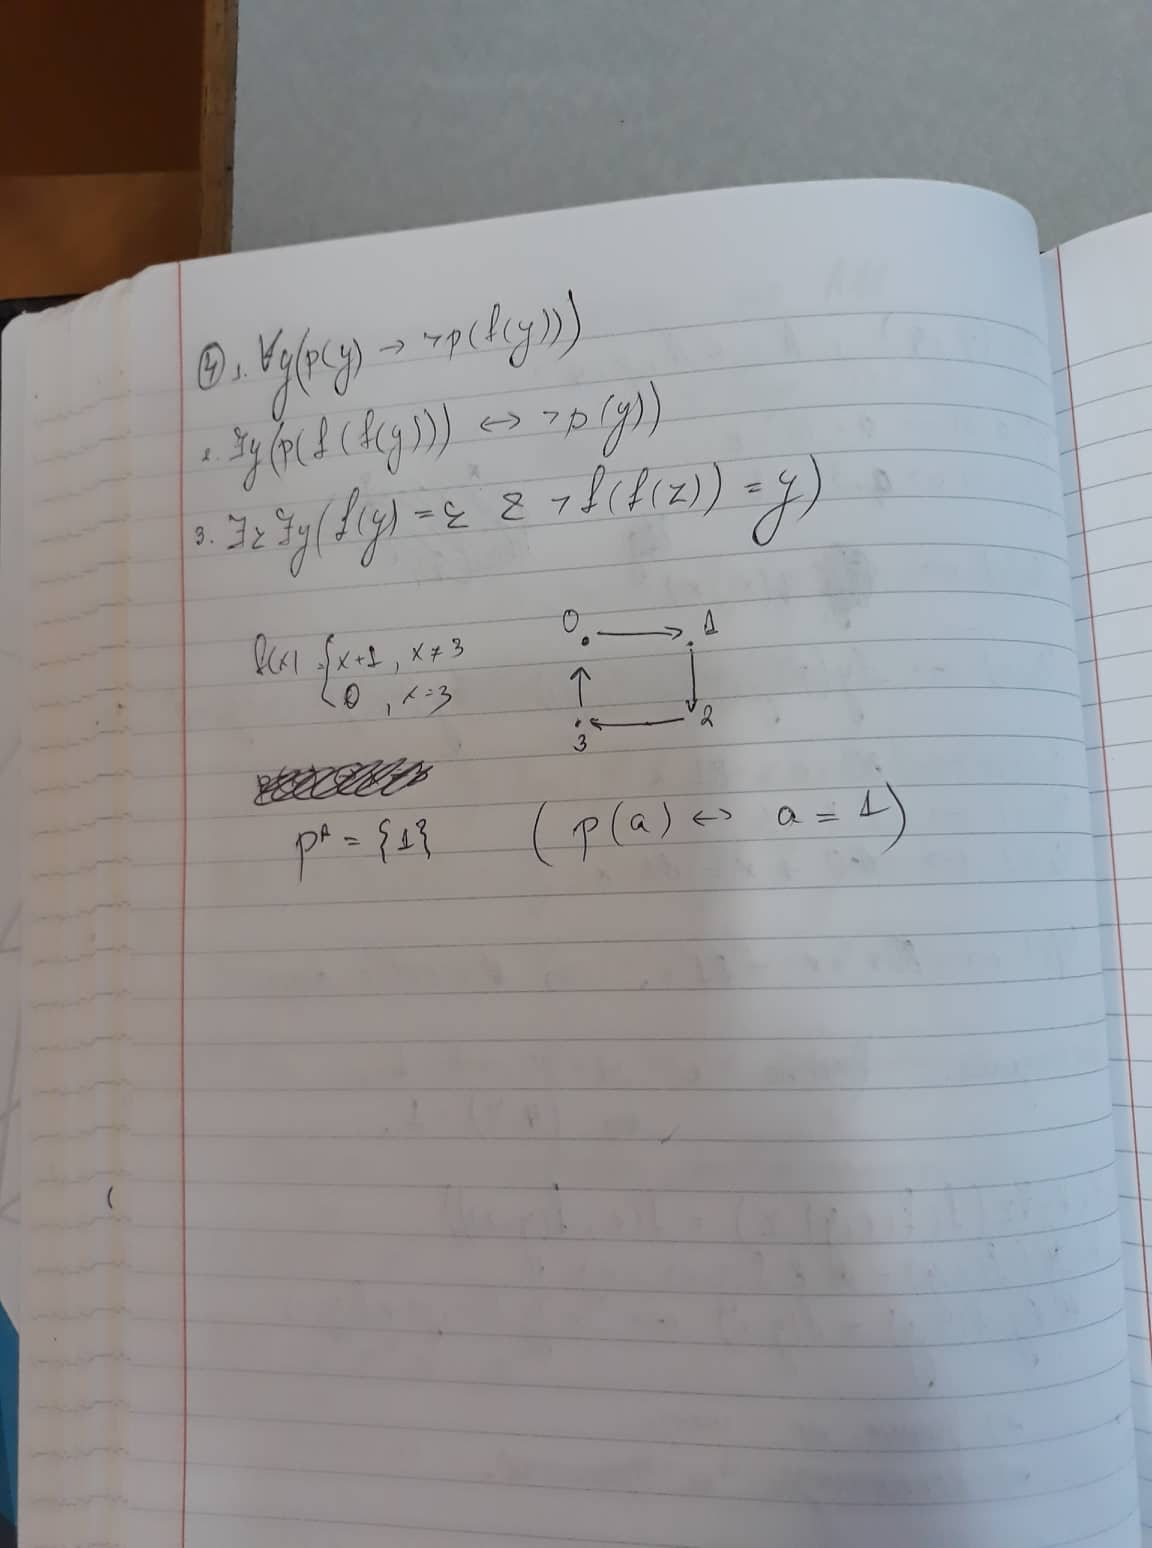 ④ 1. ∀y(p(y) → ¬p(f(y)))
2. ∃y(p(f(f(y))) ↔ ¬p(y))
3. ∃z∃y(f(y) = z & ¬f(f(z)) = y)
f(x) = {x+1, x≠3
0, x=3
0 1
3 2
pᴬ = {1} (p(a) ↔ a = 1)